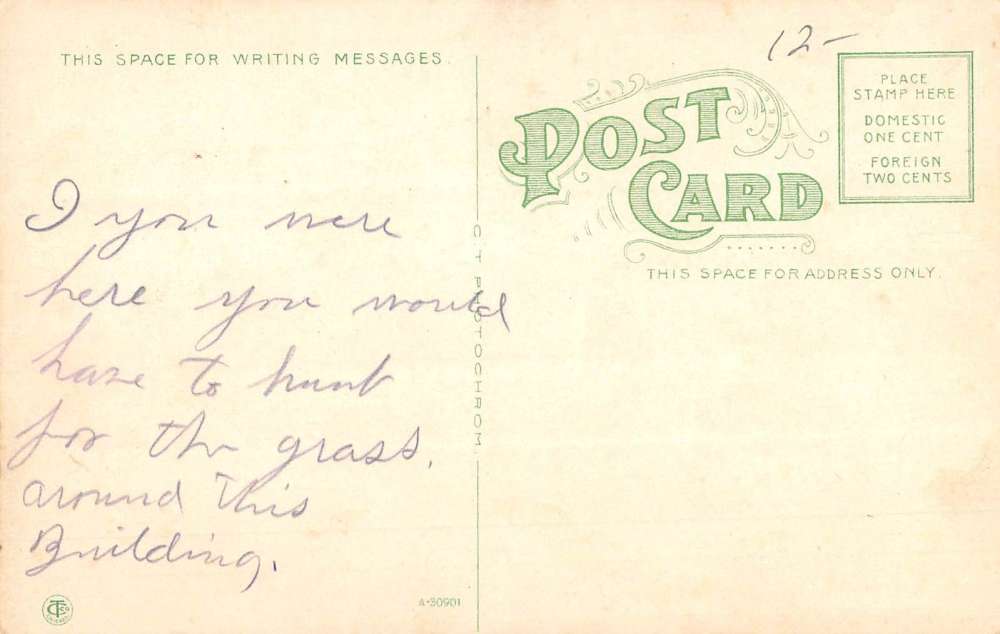 THIS SPACE FOR WRITING MESSAGES.
I you were
here you would
have to hunt
for the grass.
around This
Building.
A-30901
C. T. PHOTOCHROM.
12-
POST
CARD
PLACE
STAMP HERE
DOMESTIC
ONE CENT
FOREIGN
TWO CENTS
THIS SPACE FOR ADDRESS ONLY.